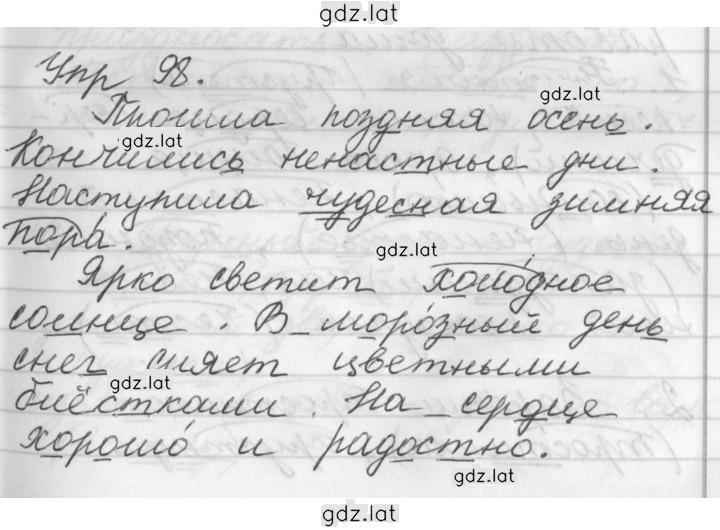 gdz.lat
Упр 98.
gdz.lat
Прошла поздняя осень.
gdz.lat
Кончились ненастные дни.
Наступила чудесная зимняя
пора.
gdz.lat
Ярко светит холодное
солнце. В морозный день
снег сияет цветными
gdz.lat
блёстками. На сердце
хорошо и радостно.
gdz.lat
gdz.lat